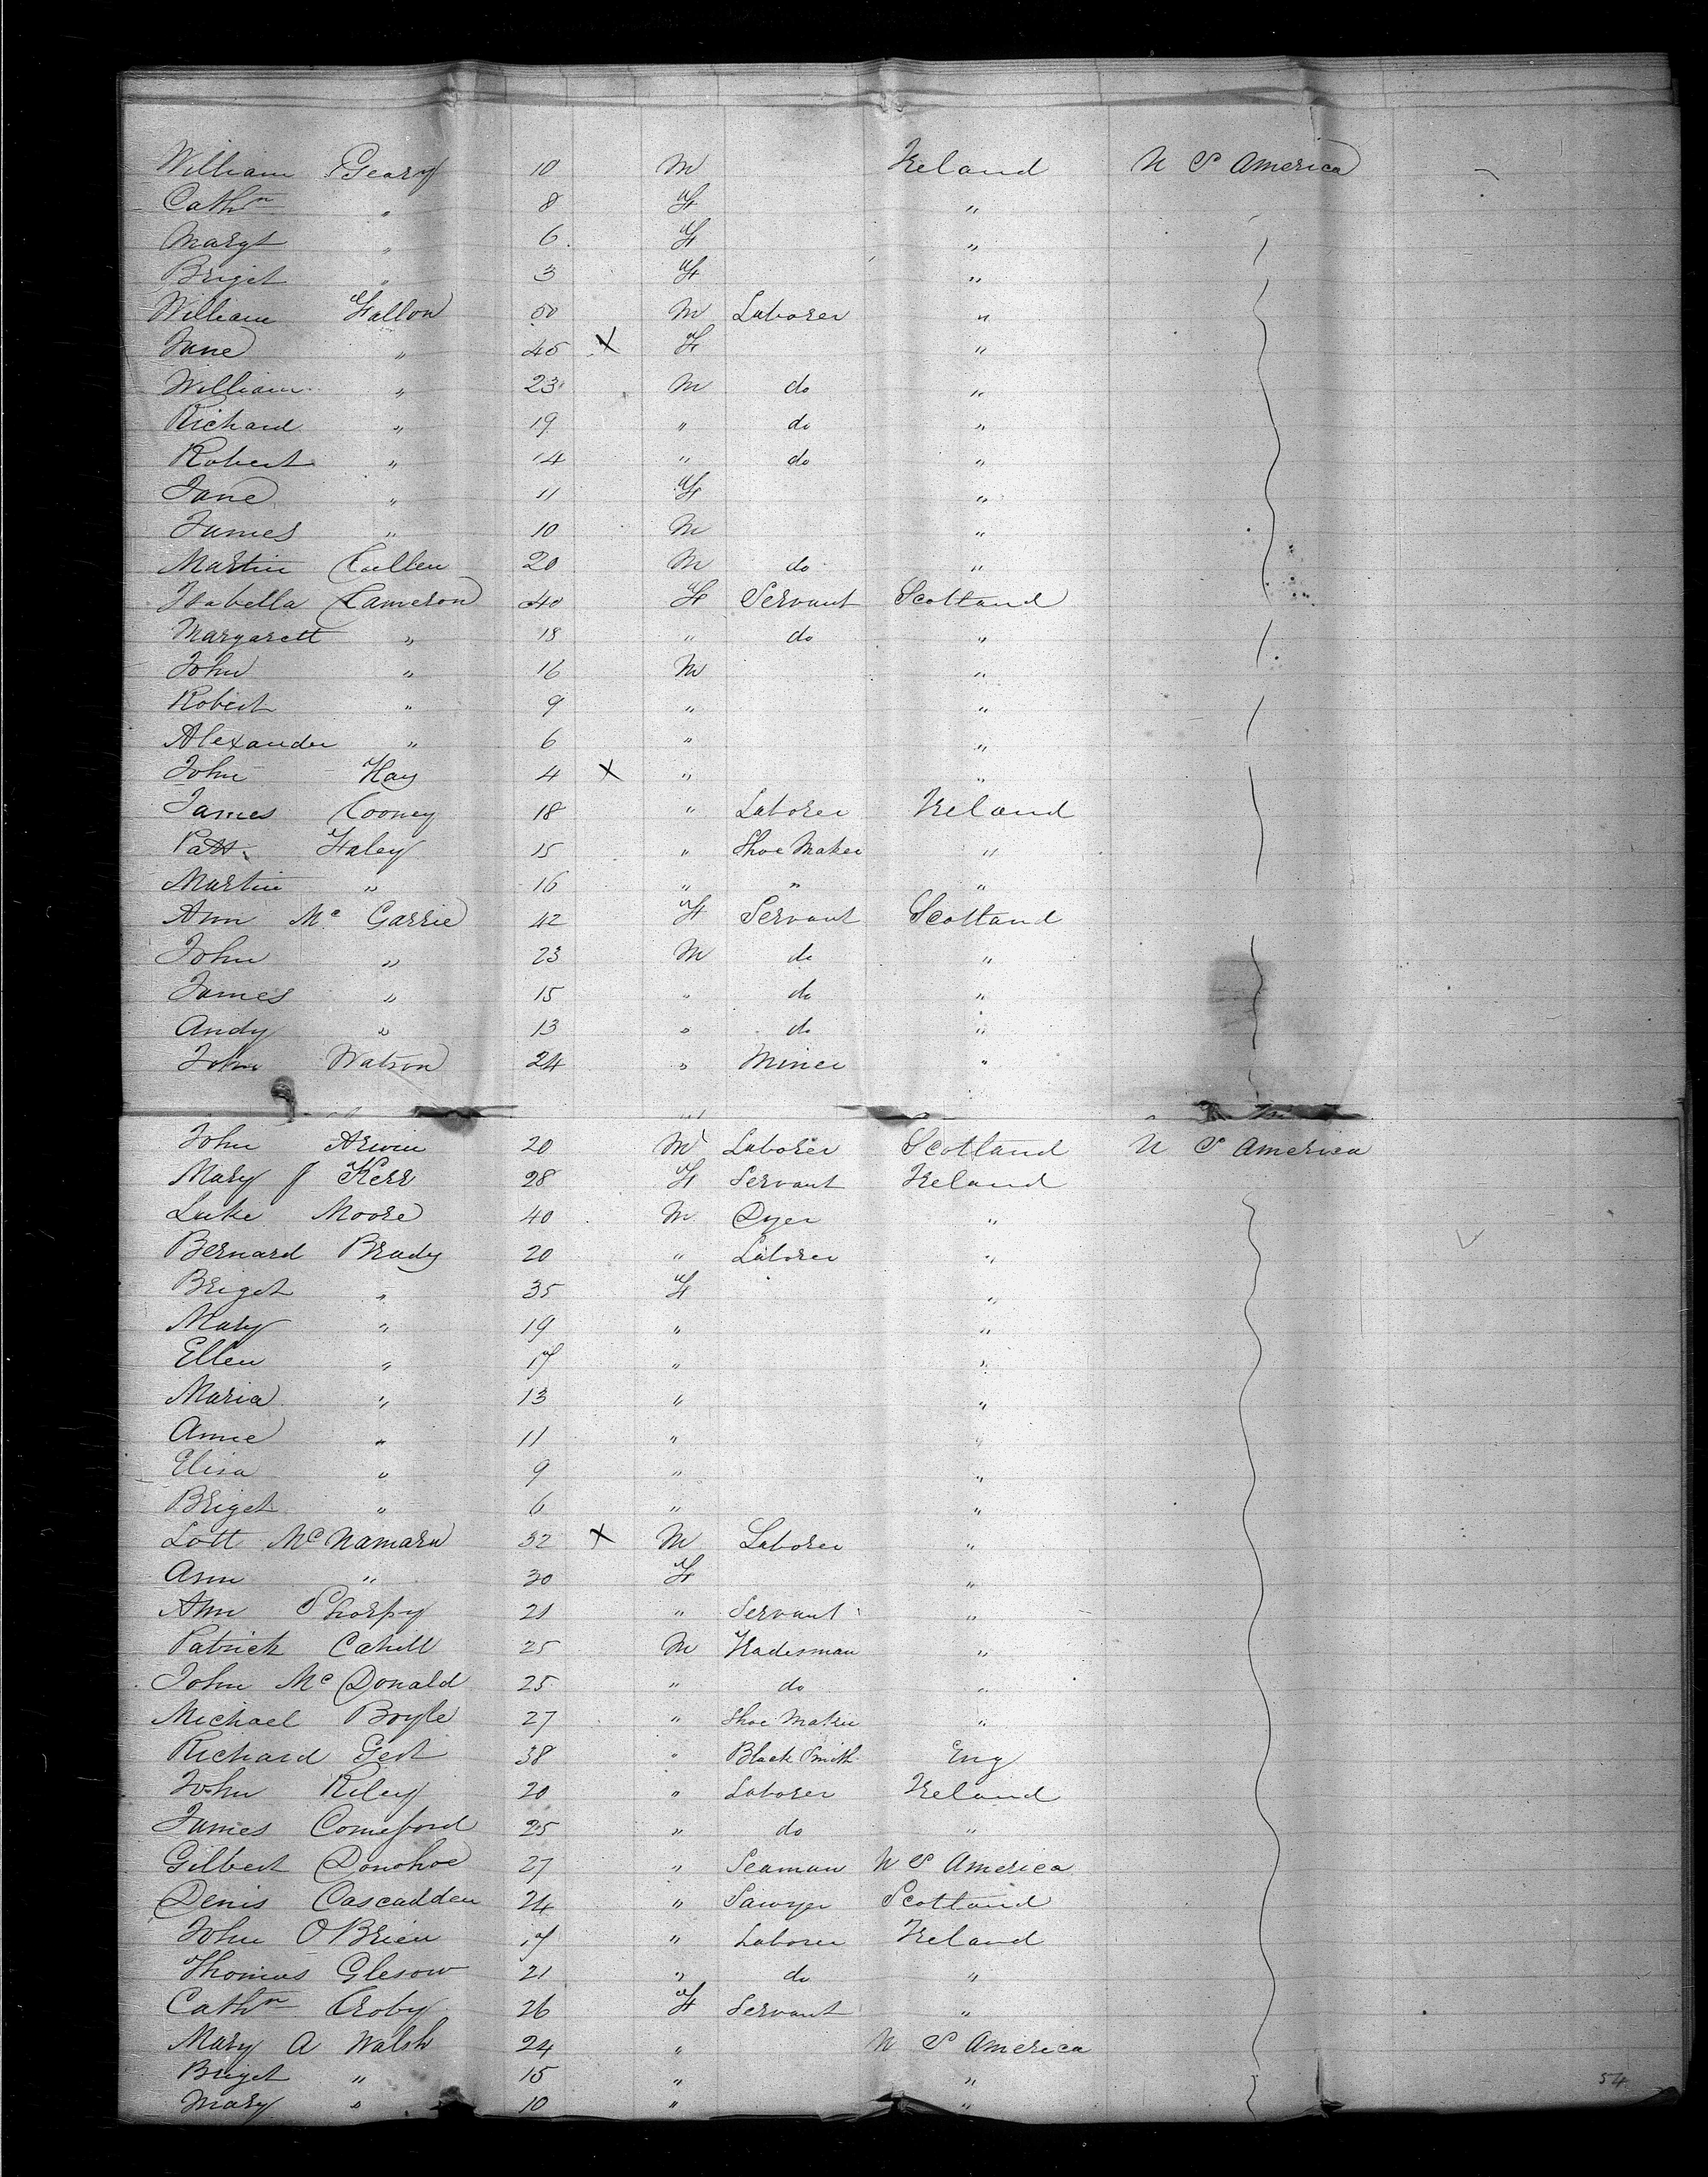 William Geary 10 M Ireland U S America
Cathn " 8 F "
Margt " 6 F "
Briget " 3 F "
William Fallon 50 M Laborer "
Jane " 45 X F "
William " 23 M do "
Richard " 19 " do "
Robert " 14 " do "
Jane " 11 F "
James " 10 M "
Martin Cullen 20 M do "
Isabella Cameron 40 F Servant Scotland
Margarett " 18 " do "
John " 16 M "
Robert " 9 " "
Alexander " 6 " "
John Hay 4 X " "
James Cooney 18 " Laborer Ireland
Patt. Faley 15 " Shoe Maker "
Martin " 16 " " "
Ann Mc Garrie 42 F Servant Scotland
John " 23 M do "
James " 15 " do "
Andy " 13 " do "
John Watson 24 " Miner "
John Arwin 20 M Laborer Scotland U S America
Mary J Kerr 28 F Servant Ireland
Luke Moore 40 M Dyer "
Bernard Brady 20 " Laborer "
Briget " 35 F "
Mary " 19 " "
Ellen " 17 " "
Maria " 13 " "
Anne " 11 " "
Eliza " 9 " "
Briget " 6 " "
Lott McNamara 32 X M Laborer "
Ann " 30 F "
Ann 21 " Servant "
Patrick Cahill 25 M Tradesman "
John Mc Donald 25 " do "
Michael Boyle 27 " Shoe Maker "
Richard Gest 38 " Black Smith Eng
John Riley 20 " Laborer Ireland
James Comeford 25 " do "
Gilbert Donohoe 27 " Seaman U S America
Denis Cascadden 24 " Sawyer Scotland
John O Brien 17 " Laborer Ireland
Thomas Glesow 21 " do "
Cathn Croby 26 F Servant "
Mary A Walsh 24 " U S America
Briget " 15 " "
Mary " 10 " "
54